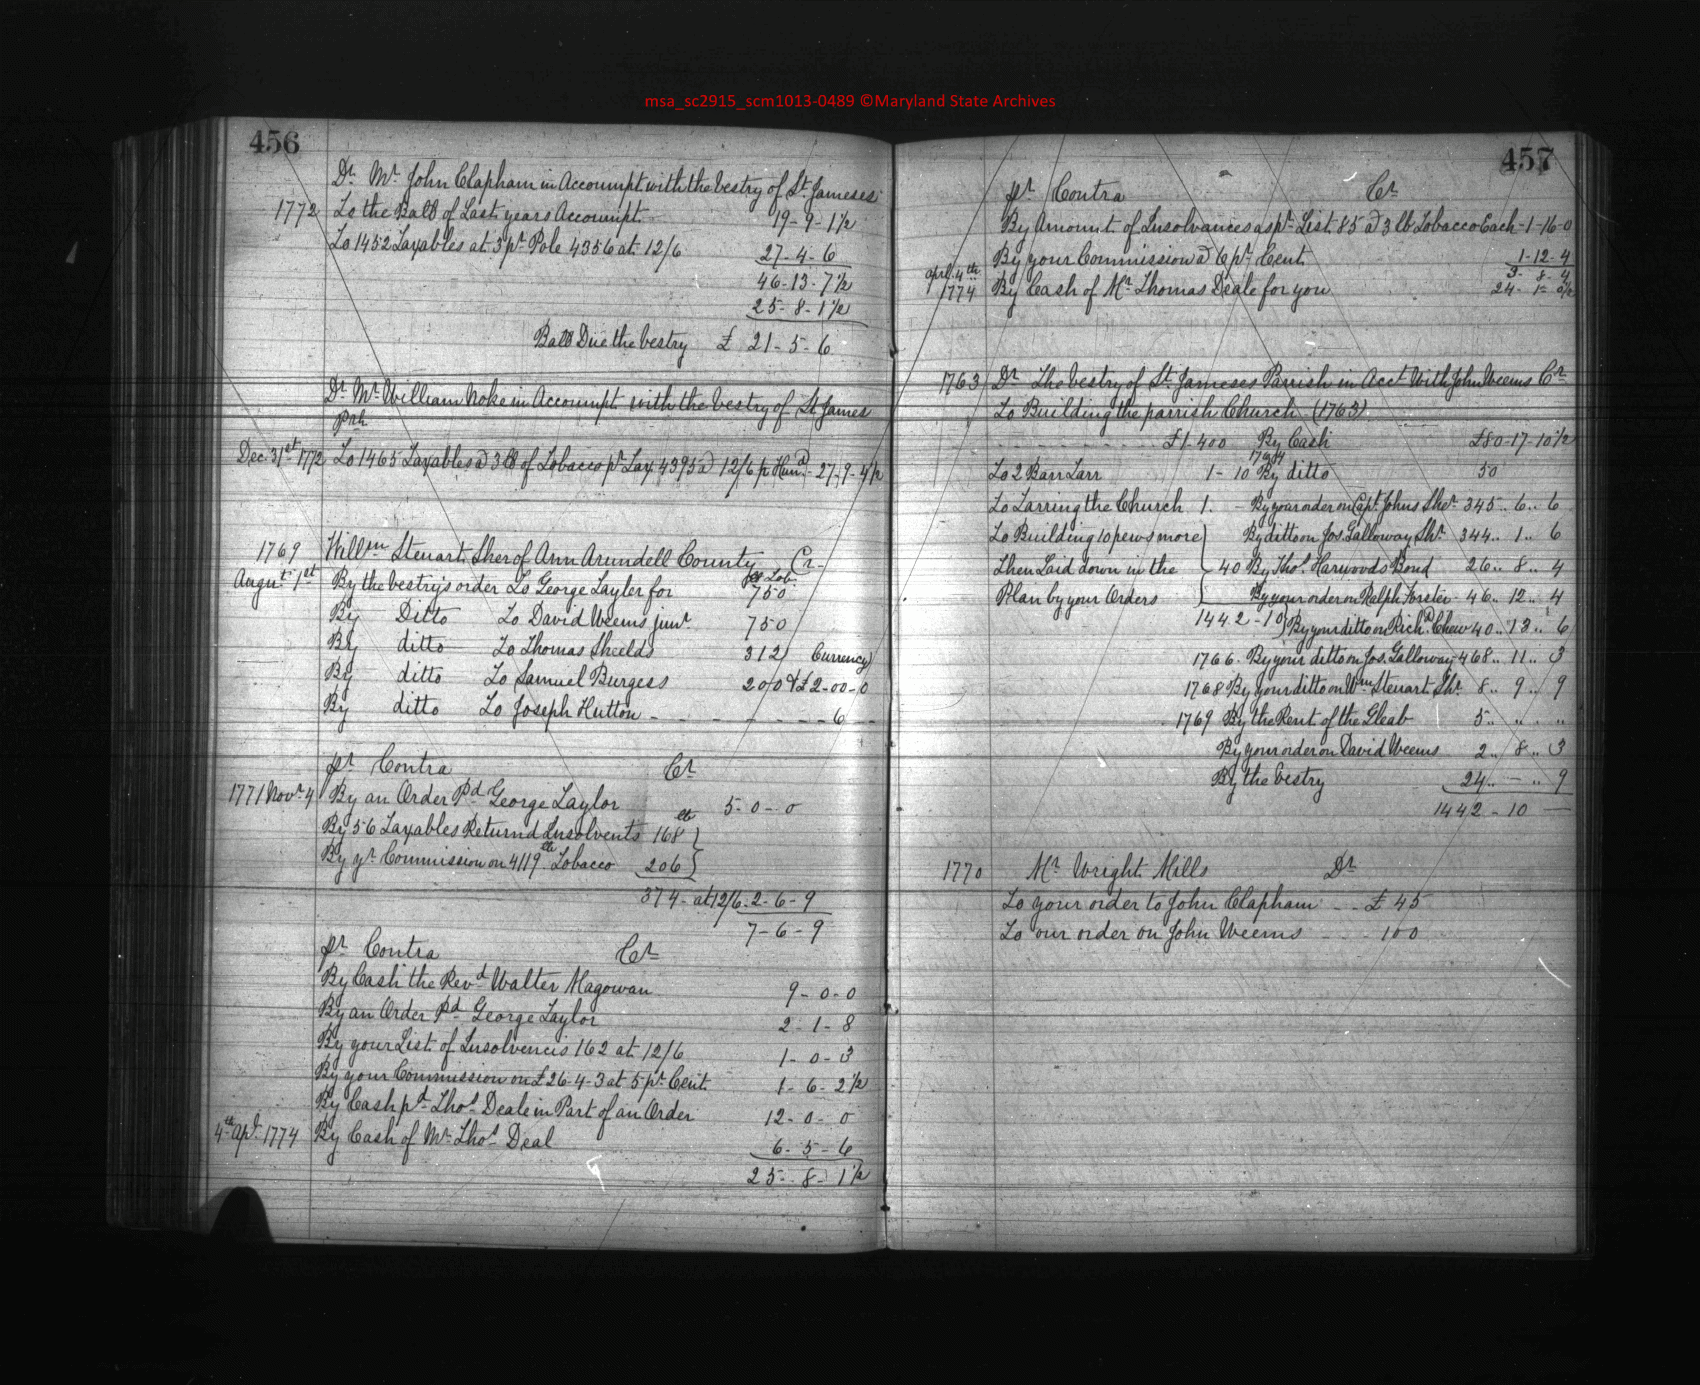 msa_sc2915_scm1013-0489 ©Maryland State Archives
456
Dr. Mr. John Clapham in Accoumpt with the vestry of St. Jameses
1772 To the Ball of Last years Accoumpt 19-9-1½
To 1452 Taxables at 3 pr. Pole 4356 at 12/6 27-4-6
46-13-7½
25-8-1½
Ball Due the vestry £ 21-5-6
Dr. Mr. William Noke in Accoumpt with the vestry of St. James
Pah
Dec. 31st 1772 To 1465 Taxables @ 3 lb of Tobacco pr. Tax 4395 @ 12/6 p Hund. 27-9-4½
1769 Willm Steuart Sher of Ann Arundell County Cr-
Augut. 1st By the vestry's order To George Tayler for lb Tob. 750
By Ditto To David Weems junr. 750
By ditto To Thomas Shields 312 Currency
By ditto To Samuel Burgess 200 & £2-00-0
By ditto To Joseph Hutton - - - - - - - 6 - -
pr. Contra Cr.
1771 Novr. 4 By an Order Pd. George Taylor 5-0-0
By 56 Taxables Returnd Insolvents 168 lb
By yr. Commission on 4119 lb Tobacco 206
374- at 12/6 2-6-9
7-6-9
pr. Contra Cr.
By Cash the Revd. Walter Magowan 9-0-0
By an Order Pd. George Taylor 2-1-8
By your List of Insolvencis 162 at 12/6 1-0-3
By your Commission on £26-4-3 at 5 pr. Cent. 1-6-2½
By Cash pd. Thos. Deale in Part of an Order 12-0-0
4th apl. 1774 By Cash of Mr. Thos. Deal 6-5-6
25-8-1½
457
pr. Contra Cr.
By Amount of Insolvances as pr. List 85 @ 3 lb Tobacco Each-1-16-0
By your Commission @ 6 pr. Cent. 1-12-4
3-8-4
aprl. 4th 1774 By Cash of Mr. Thomas Deale for you 24-1-0½
1763 Dr. The vestry of St. Jameses Parrish in Acct. With John Weems Cr.
To Building the parrish Church (1763)
£1400 By Cash £80-17-10½
To 2 Barr Tarr 1-10 1764 By ditto 50
To Tarring the Church 1. - By your order on Capt. Johns Sher. 345.. 6.. 6
To Building 10 pews more By ditto on Jos. Galloway Shr. 344.. 1.. 6
then Laid down in the 40 By Thos. Harwoods Bond 26.. 8.. 4
Plan by your Orders By your order on Ralph Forster 46.. 12.. 4
1442-10 By your ditto on Richd. Chew 40.. 13.. 6
1766. By your ditto on Jos. Galloway 468.. 11.. 3
1768 By your ditto on Wm. Steuart Shr. 8.. 9.. 9
1769 By the Rent of the Gleab 5.. .. ..
By your order on David Weems 2.. 8.. 3
By the Vestry 24.. - .. 9
1442-10 -
1770 Mr. Wright Mills Dr.
To your order to John Clapham - - £ 45
To our order on John Weems - - 100